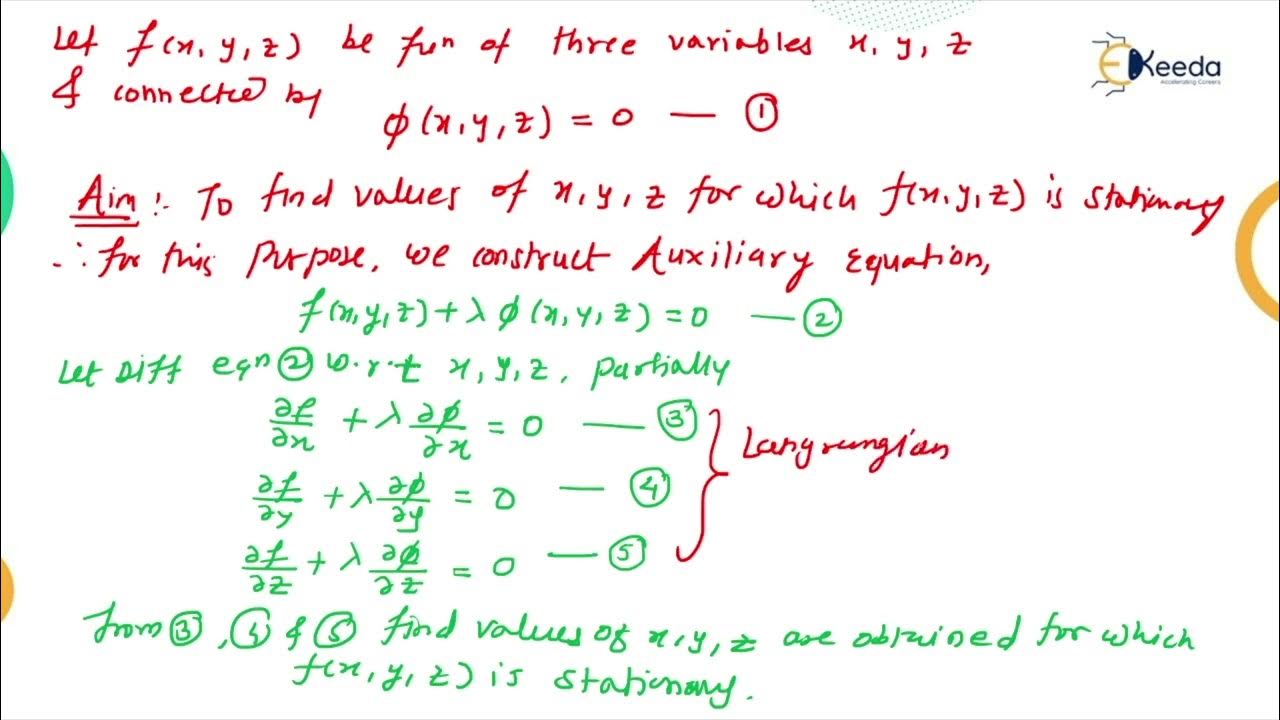 Let f(x, y, z) be fun of three variables x, y, z
& connected by
EKeeda
Accelerating Careers
ϕ(x, y, z) = 0 — ①
Aim :- To find values of x, y, z for which f(x, y, z) is stationary
∴ for this purpose, we construct Auxiliary Equation,
f(x, y, z) + λ ϕ(x, y, z) = 0 — ②
Let Diff eqn ② w.r.t x, y, z, partially
∂f/∂x + λ ∂ϕ/∂x = 0 — ③
∂f/∂y + λ ∂ϕ/∂y = 0 — ④
∂f/∂z + λ ∂ϕ/∂z = 0 — ⑤
Langrangian
from ③, ④ & ⑤ find values of x, y, z are obtained for which
f(x, y, z) is stationary.